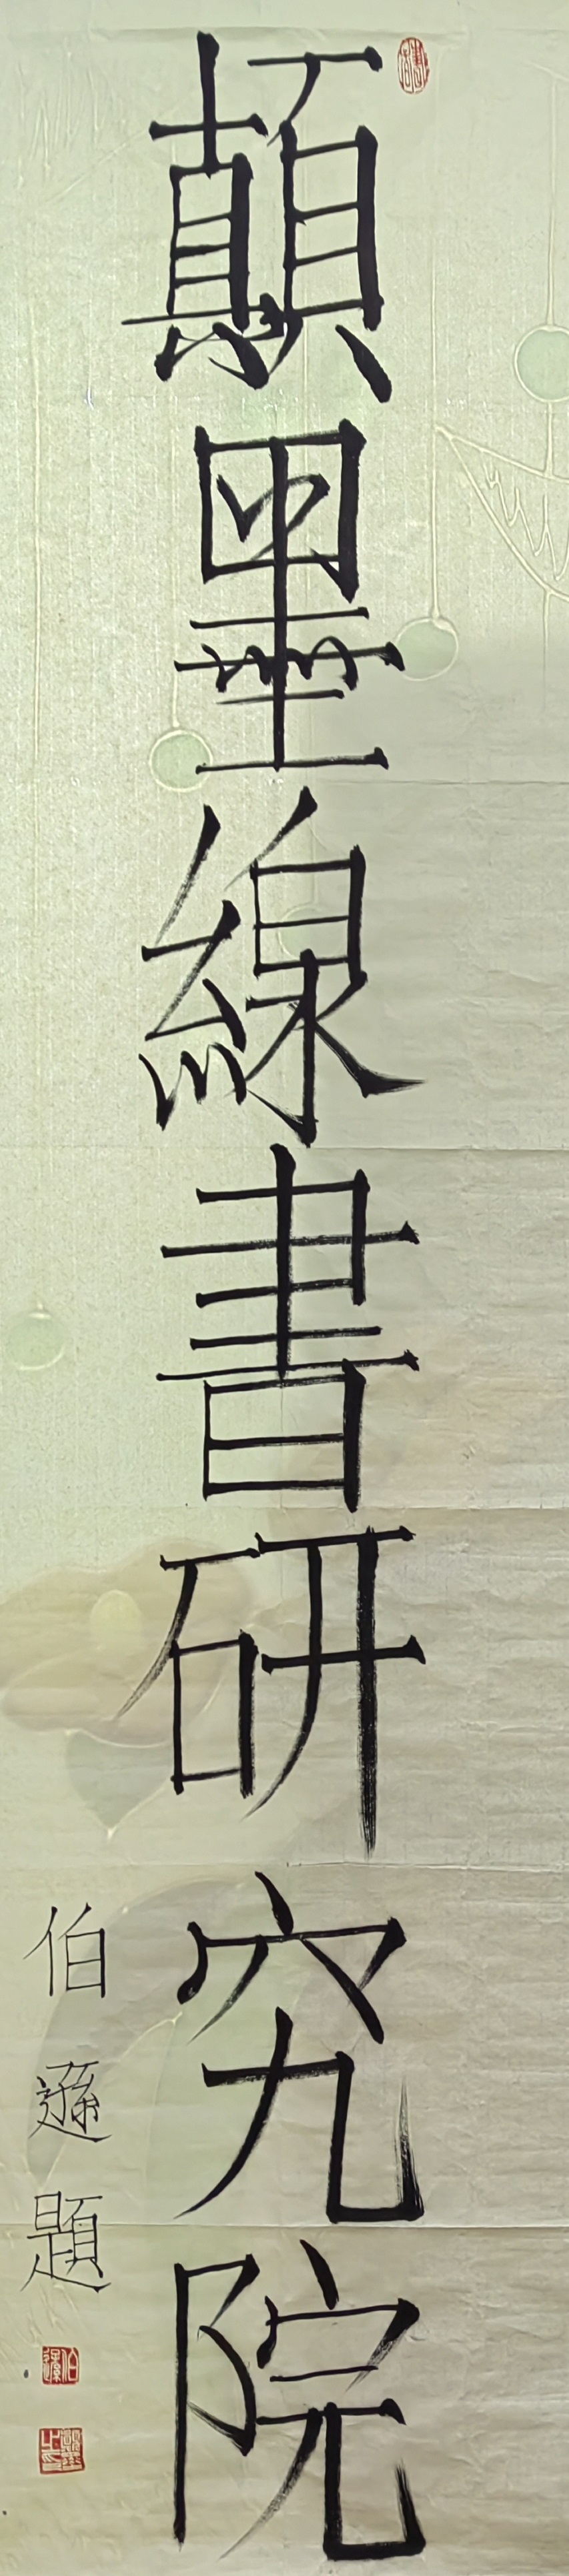 顛墨線書研究院
伯遜題